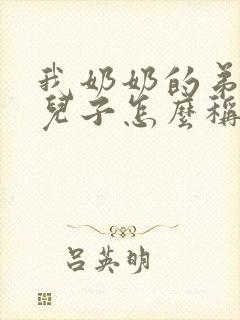 我奶奶的弟
兒子怎麼稱
呂英明